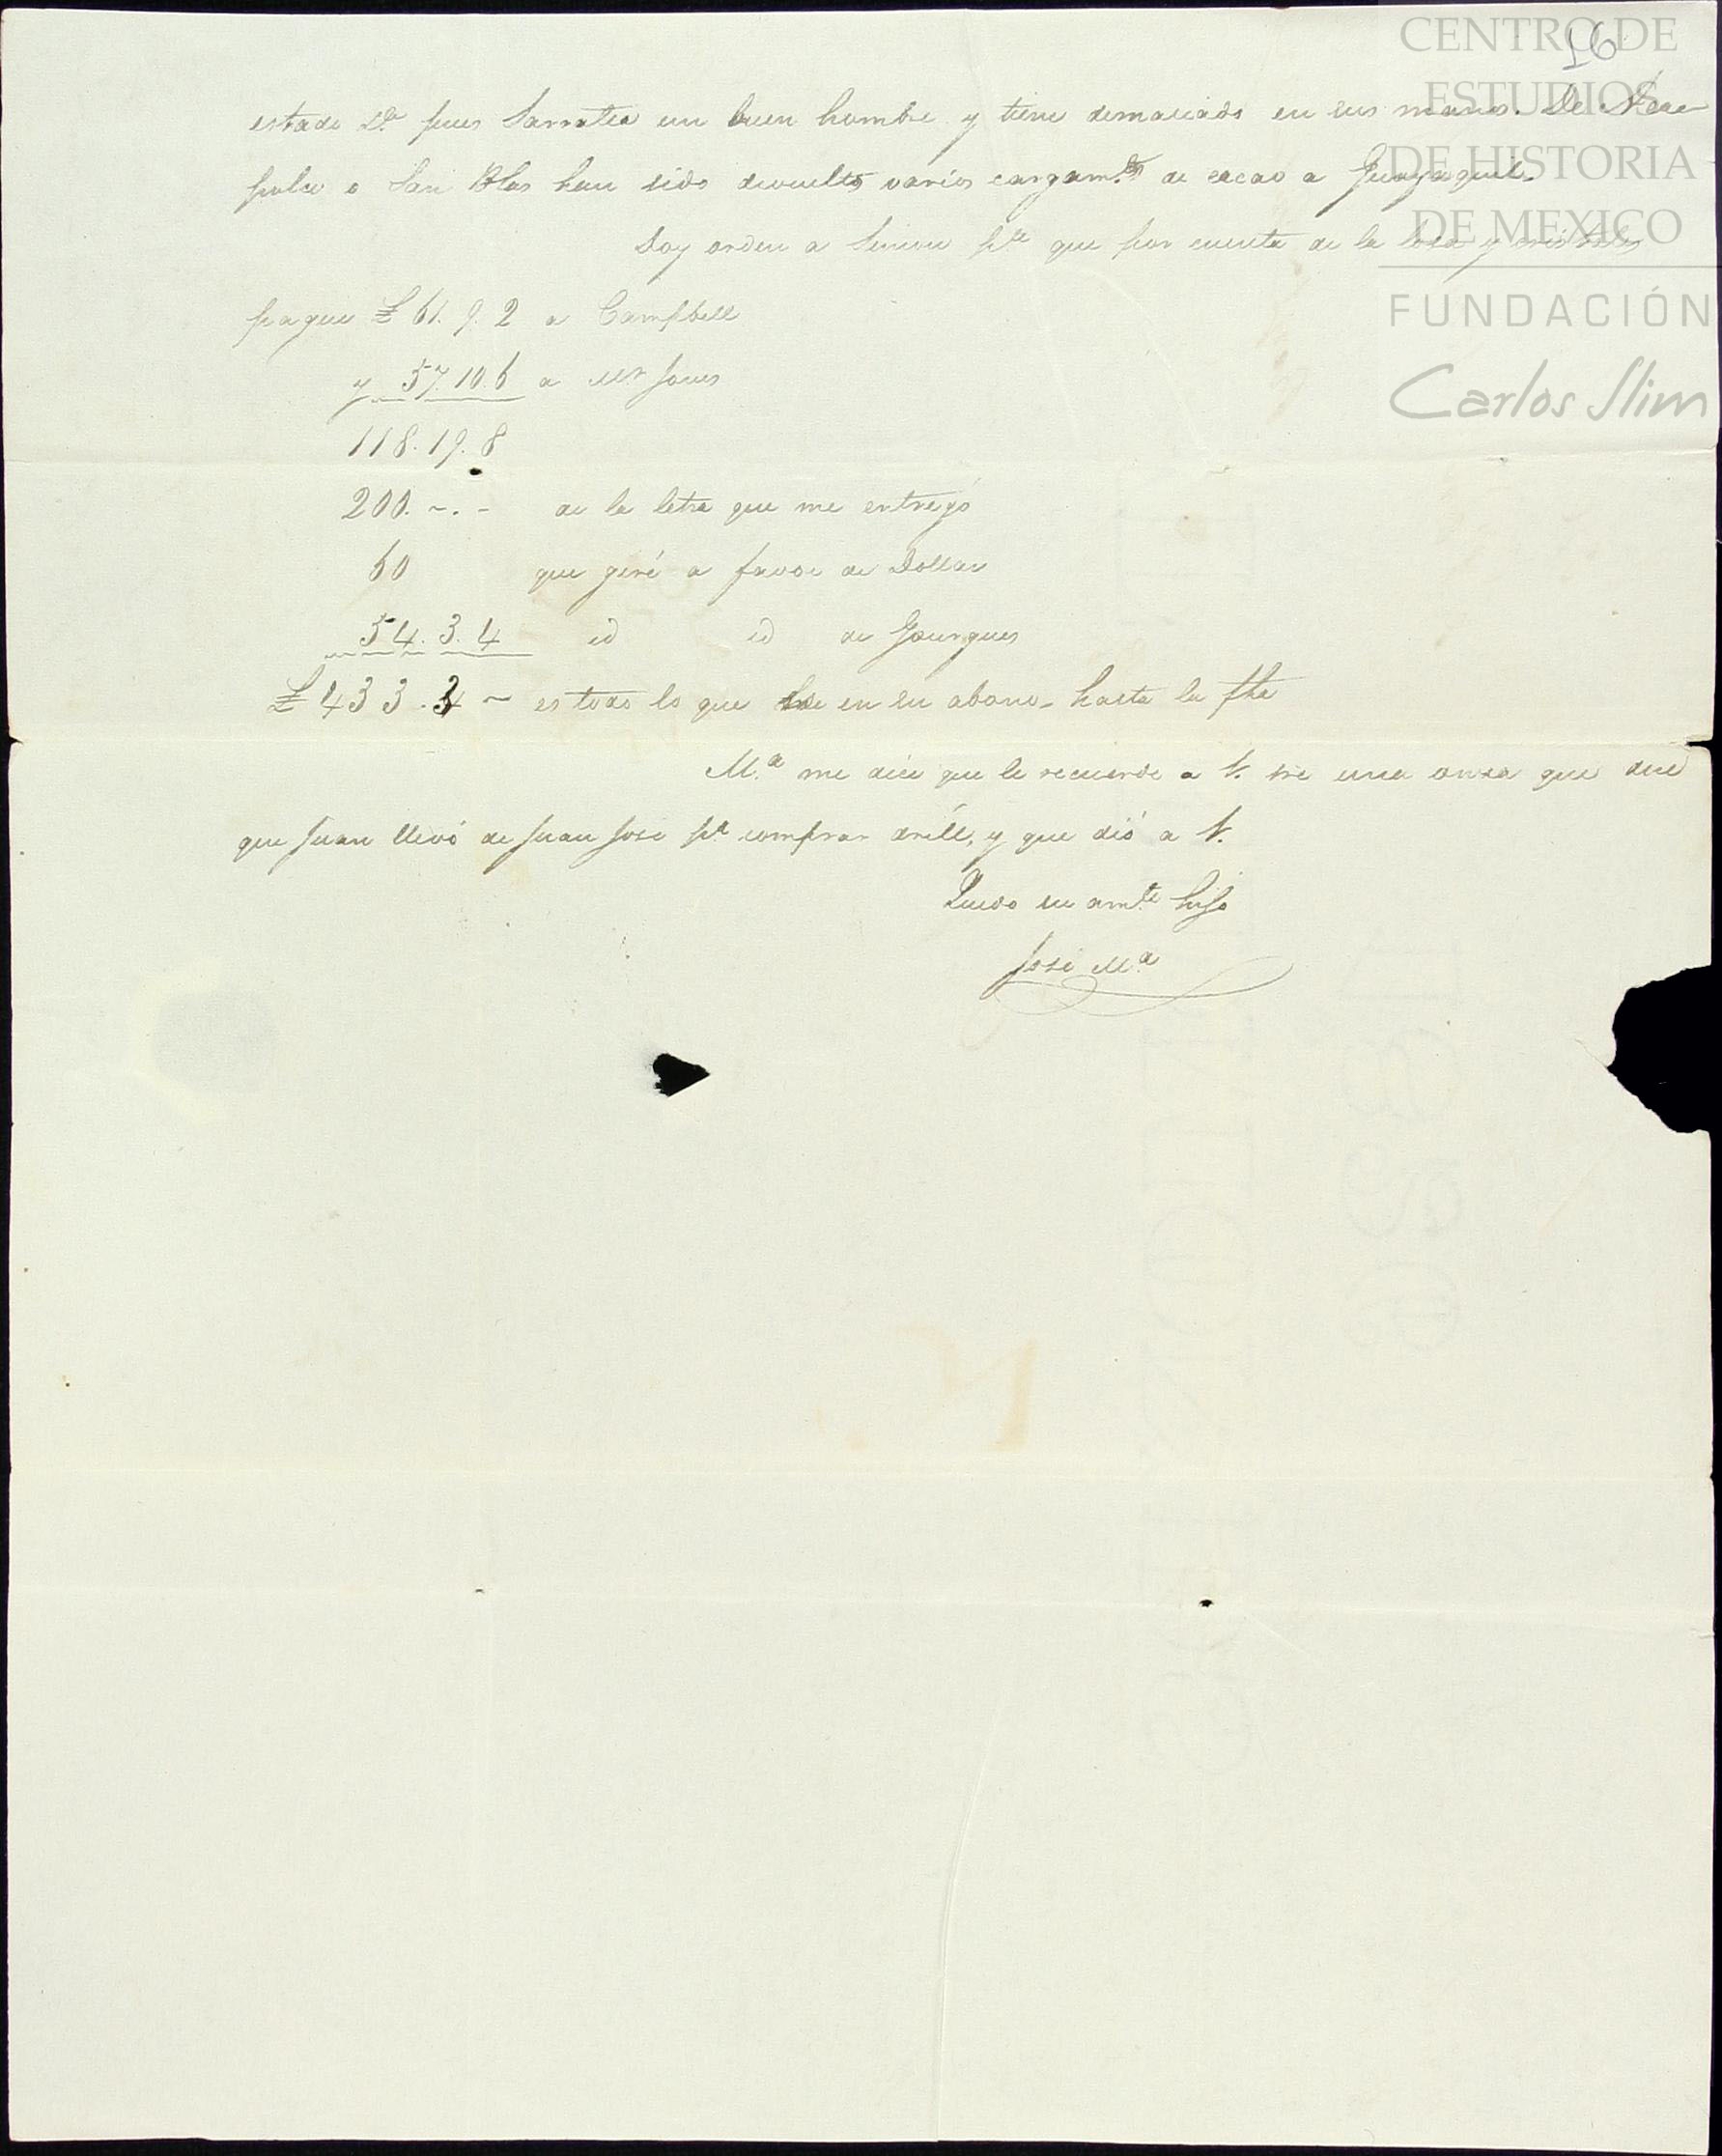 16
CENTRO DE
ESTUDIOS
DE HISTORIA
DE MEXICO
FUNDACIÓN
Carlos Slim
estado pues Sarratea un buen hombre y tiene demaciado en sus manos. De Aca-
pulco o San Blas han sido devueltos varios cargam.tos de cacao a Guayaquil.
Doy orden a que por cuenta de la loza y cristales
pague £ 61. 9. 2 a Campbell
y 57. 10. 6 a Mr Jones
118. 19. 8
200. ~. - de la letra que me entregó
60 que giré a favor de Dollar
54. 3. 4 id id de Gourgues
£ 433. 3 ~ es todo lo que en su abono hasta la fha
M.a me dice que le recuerde a V. sre una onza que dice
que Juan llevó de Juan José p.a comprar drill, y que dió a V.
Quedo su am.te hijo
José M.a